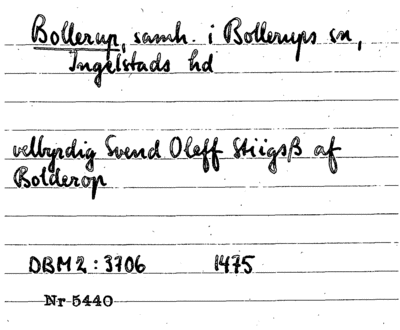 Bollerup, samh. i Bollerups sn,
Ingelstads hd
velbyrdig Svend Oleff Stiigsß af
Bolderop
DBM2:3706 1475
Nr 5440